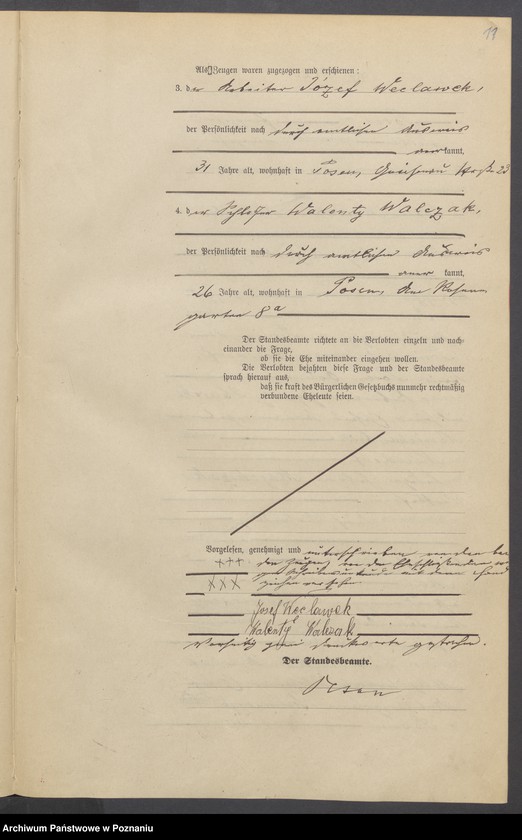 11
Als Zeugen waren zugezogen und erschienen:
3. der Arbeiter Józef Weclawek,
der Persönlichkeit nach durch amtlichen Ausweis
kannt,
31 Jahre alt, wohnhaft in Posen, Straße 23
4. der Schlosser Walenty Walczak,
der Persönlichkeit nach durch amtlichen Ausweis
kannt,
26 Jahre alt, wohnhaft in Posen, Am Rosen
garten 8a
Der Standesbeamte richtete an die Verlobten einzeln und nach-
einander die Frage,
ob sie die Ehe miteinander eingehen wollen.
Die Verlobten bejahten diese Frage und der Standesbeamte
sprach hierauf aus,
daß sie kraft des Bürgerlichen Gesetzbuchs nunmehr rechtmäßig
verbundene Eheleute seien.
Vorgelesen, genehmigt und unterschrieben von den
+++ den Zeugen, von den Eheschließenden
XXX
Josef Węclawek
Walenty Walczak
Vorseitig zwei Druckworte gestrichen.
Der Standesbeamte.